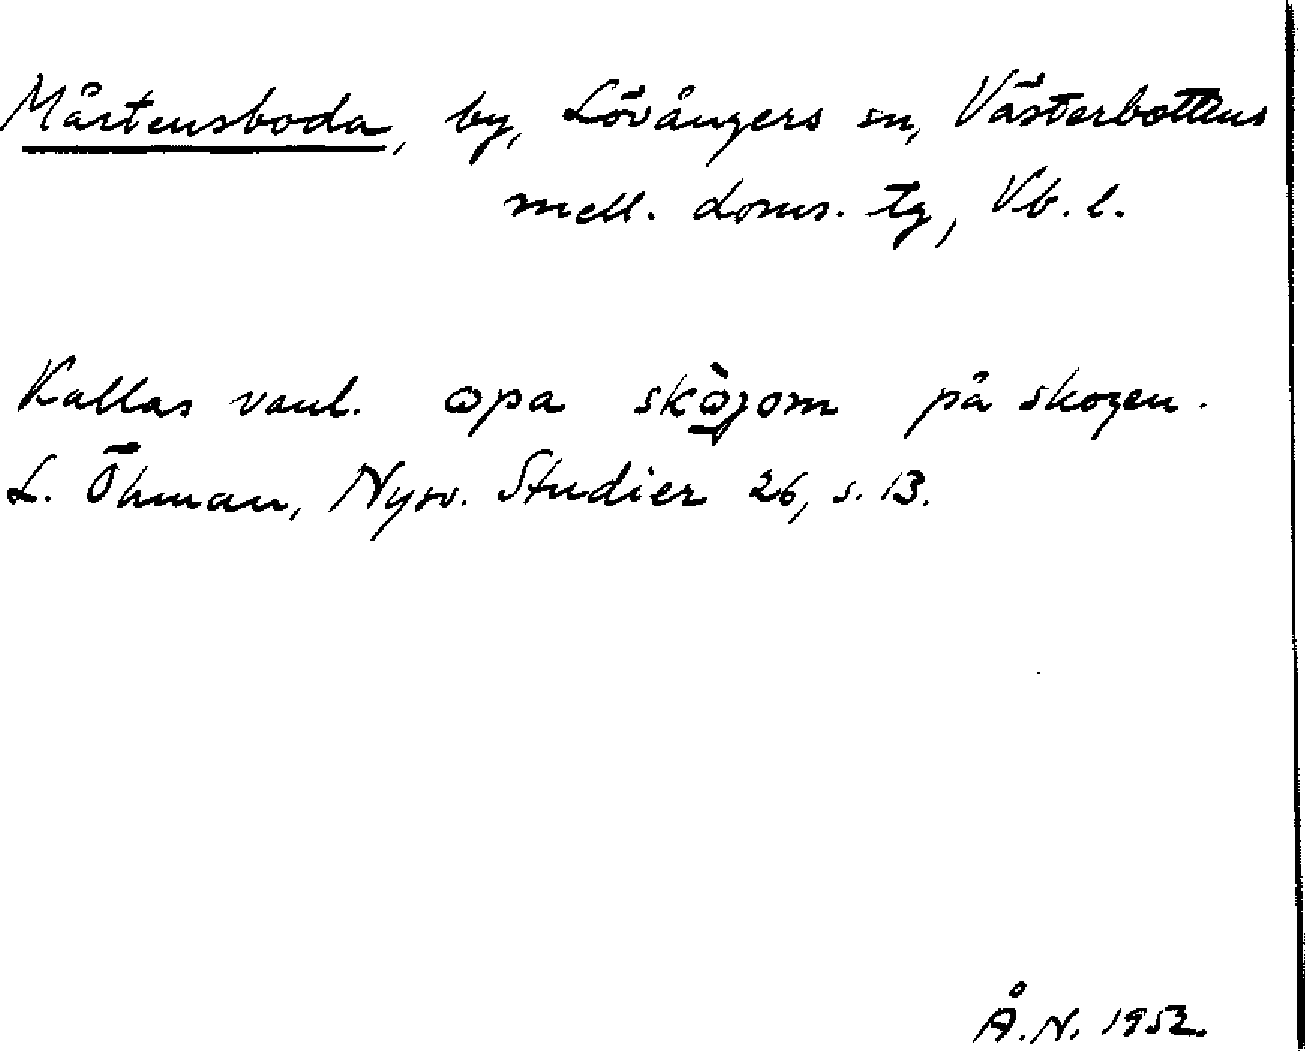 Mårtensboda, by, Lövångers sn, Västerbottens
mell. doms. tg, Vb. l.
Kallas vanl. opa skò̱jom på skogen.
L. Öhman, Nysv. Studier 26, s. 13.
Å. N. 1952.